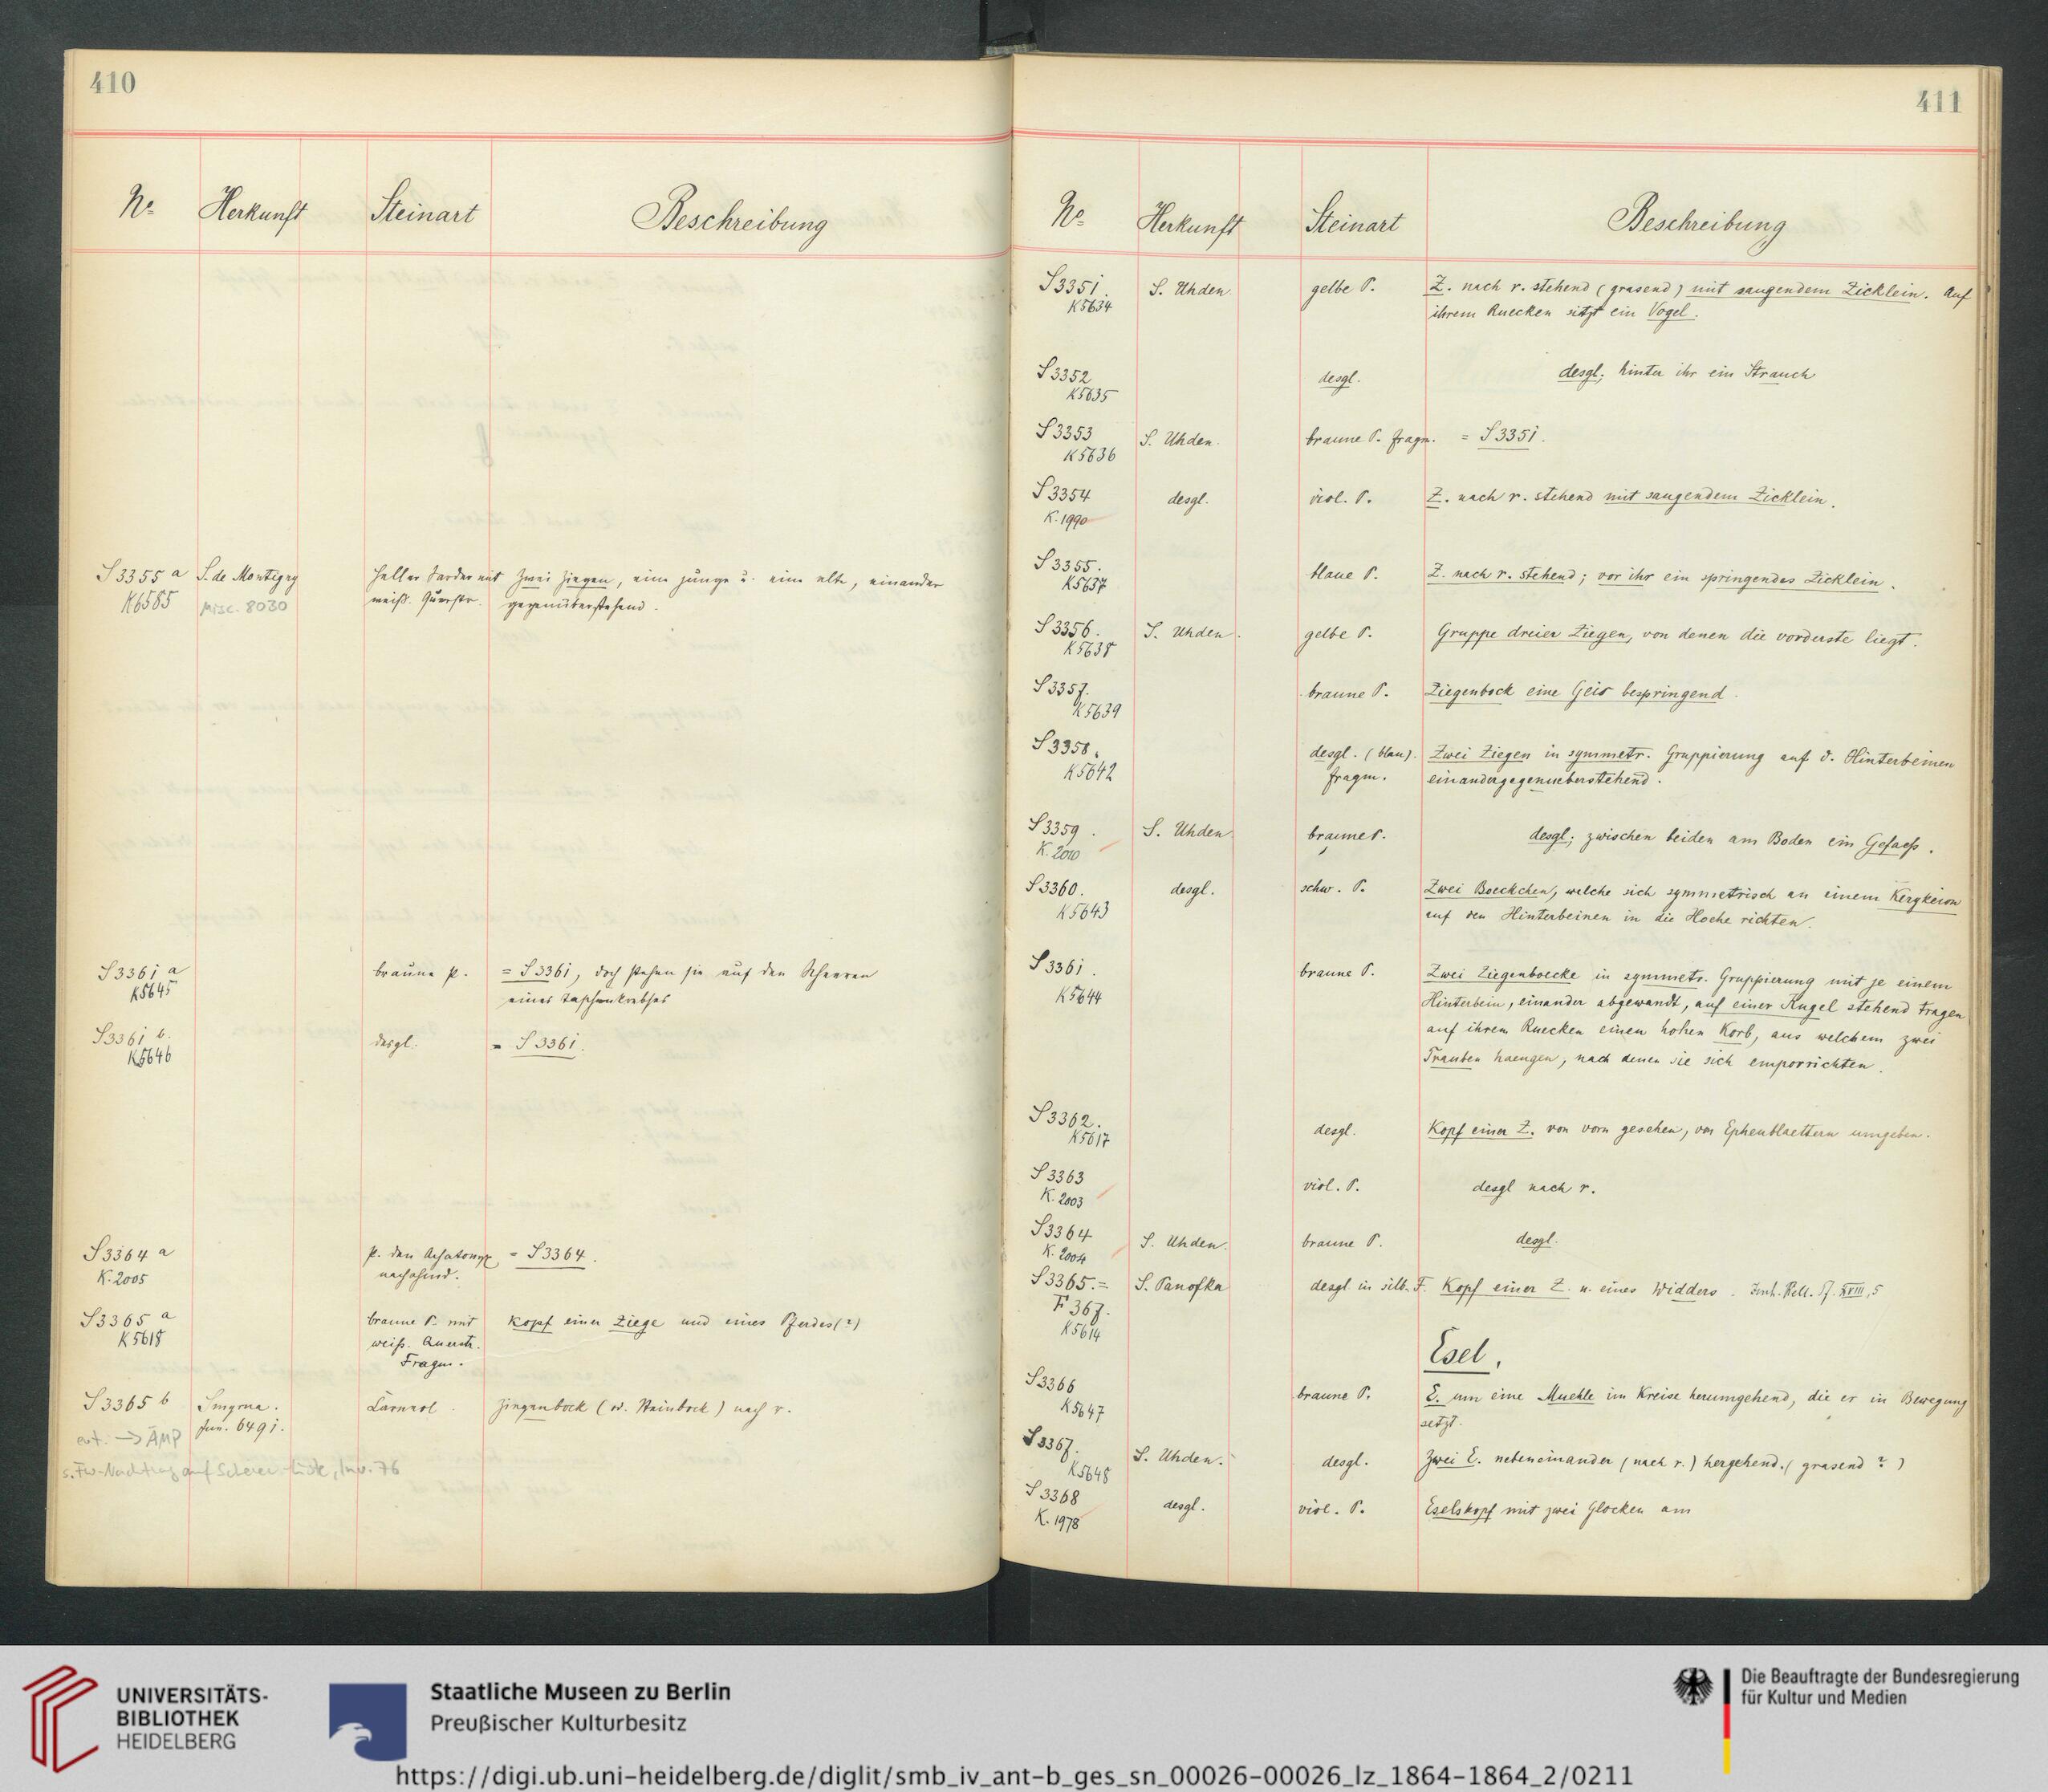 410
No Herkunft Steinart Beschreibung
S 3355 a S. de Montigny heller Sarder mit Zwei Ziegen, eine junge u. eine alte, einander
K 6585 Misc. 8030 weiß. Querstr. gegenüberstehend.
S 3361 a braune P. = S 3361, doch stehen sie auf den Scheeren
K 5645 eines Taschenkrebses
S 3361 b. desgl. = S 3361.
K 5646
S 3364 a P. den Achatonyx = S 3364.
K. 2005 nachahmd.
S 3365 a braune P. mit Kopf einer Ziege und eines Pferdes (?)
K 5618 weiß. Querstr.
Fragm.
S 3365 b Smyrna. Carneol. Ziegenbock (od. Steinbock) nach r.
Inv. 6491.
ent. → ÄMP
s. Fw-Nachtrag auf Inv. 76
411
No Herkunft Steinart Beschreibung
S 3351. S. Uhden gelbe P. Z. nach r. stehend (grasend) mit saugendem Zicklein. Auf
K 5634 ihrem Ruecken sitzt ein Vogel.
S 3352 desgl. desgl; hinter ihr ein Strauch
K 5635
S 3353 S. Uhden. braune P. fragm. = S 3351.
K 5636
S 3354 desgl. viol. P. Z. nach r. stehend mit saugendem Zicklein.
K. 1990
S 3355. blaue P. Z. nach r. stehend; vor ihr ein springendes Zicklein.
K 5637
S 3356. S. Uhden. gelbe P. Gruppe dreier Ziegen, von denen die vorderste liegt.
K 5638
S 3357. braune P. Ziegenbock eine Geis bespringend.
K 5639
S 3358. desgl. (blau). Zwei Ziegen in symmetr. Gruppierung auf d. Hinterbeinen
K 5642 fragm. einandergegenueberstehend.
S 3359. S. Uhden braune P. desgl; zwischen beiden am Boden ein Gefaeß.
K. 2010
S 3360. desgl. schw. P. Zwei Boeckchen, welche sich symmetrisch an einem Kerykeion
K 5643 auf den Hinterbeinen in die Hoehe richten.
S 3361. braune P. Zwei Ziegenboecke in symmetr. Gruppierung mit je einem
K 5644 Hinterbein, einander abgewandt, auf einer Kugel stehend tragen
auf ihrem Ruecken einen hohen Korb, aus welchem zwei
Trauben haengen, nach denen sie sich emporrichten.
S 3362. desgl. Kopf einer Z. von vorn gesehen, von Epheublaettern umgeben.
K 5617
S 3363 viol. P. desgl nach r.
K. 2003
S 3364 S. Uhden. braune P. desgl.
K. 2004
S 3365. = S. Panofka desgl. in silb. F. Kopf einer Z. u. eines Widders. Imh. Kell. Tf. XVIII, 5
F 367.
K 5614
Esel.
S 3366 braune P. E. um eine Muehle im Kreise herumgehend, die er in Bewegung
K 5647 setzt.
S 3367. S. Uhden. desgl. Zwei E. nebeneinander (nach r.) hergehend. (grasend ?)
K 5648
S 3368 desgl. viol. P. Eselskopf mit zwei Glocken am
K. 1978
UNIVERSITÄTS-
BIBLIOTHEK
HEIDELBERG
Staatliche Museen zu Berlin
Preußischer Kulturbesitz
Die Beauftragte der Bundesregierung
für Kultur und Medien
https://digi.ub.uni-heidelberg.de/diglit/smb_iv_ant-b_ges_sn_00026-00026_lz_1864-1864_2/0211